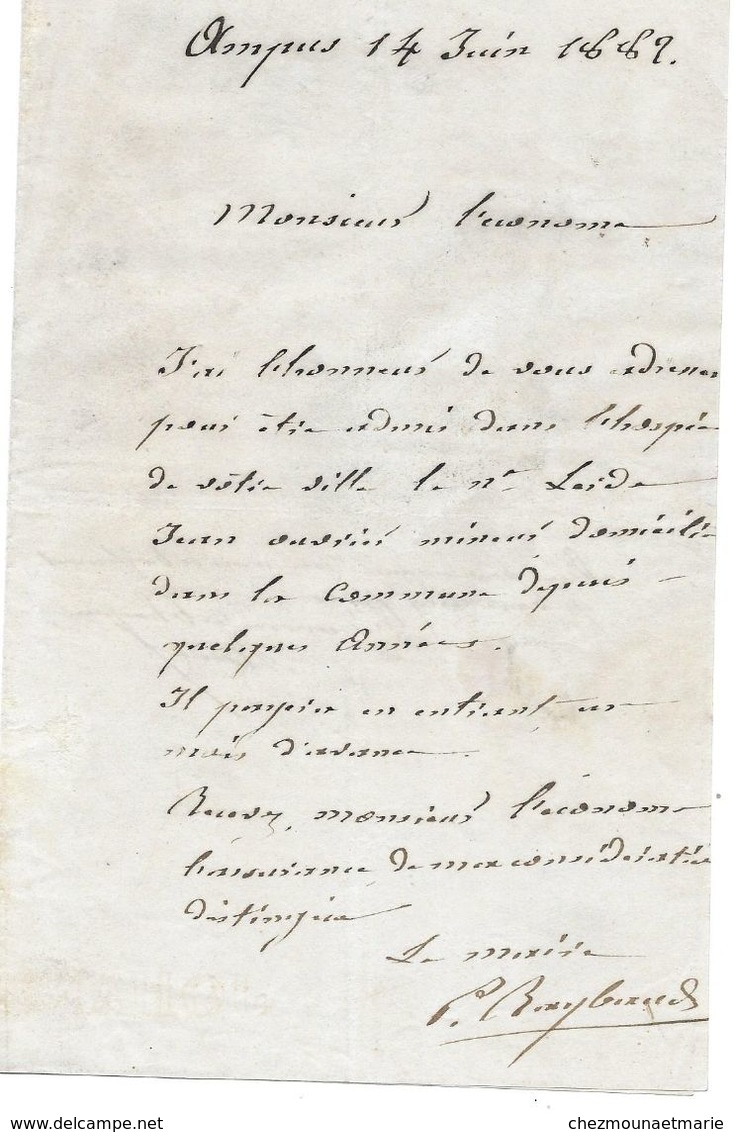 Ampus 14 Juin 1882.
Monsieur l'econome
J'ai l'honneur de vous adresser
pour être admis dans l'hospice
de vôtre ville le né
Jean ouvrier mineur domicilié
dans la Commune depuis
quelques Années.
Il payera en entrant un
mois d'avance.
Recevez, monsieur l'économe
l'assurance de ma considération
distinguée
Le maire
P. Raybaud
chezmounaetmarie